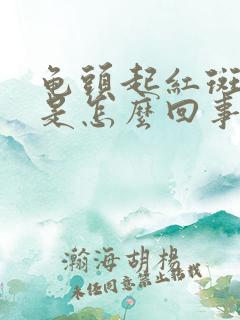 龟頭起紅斑
是怎麼回事
瀚海胡楊
未经同意禁止转载